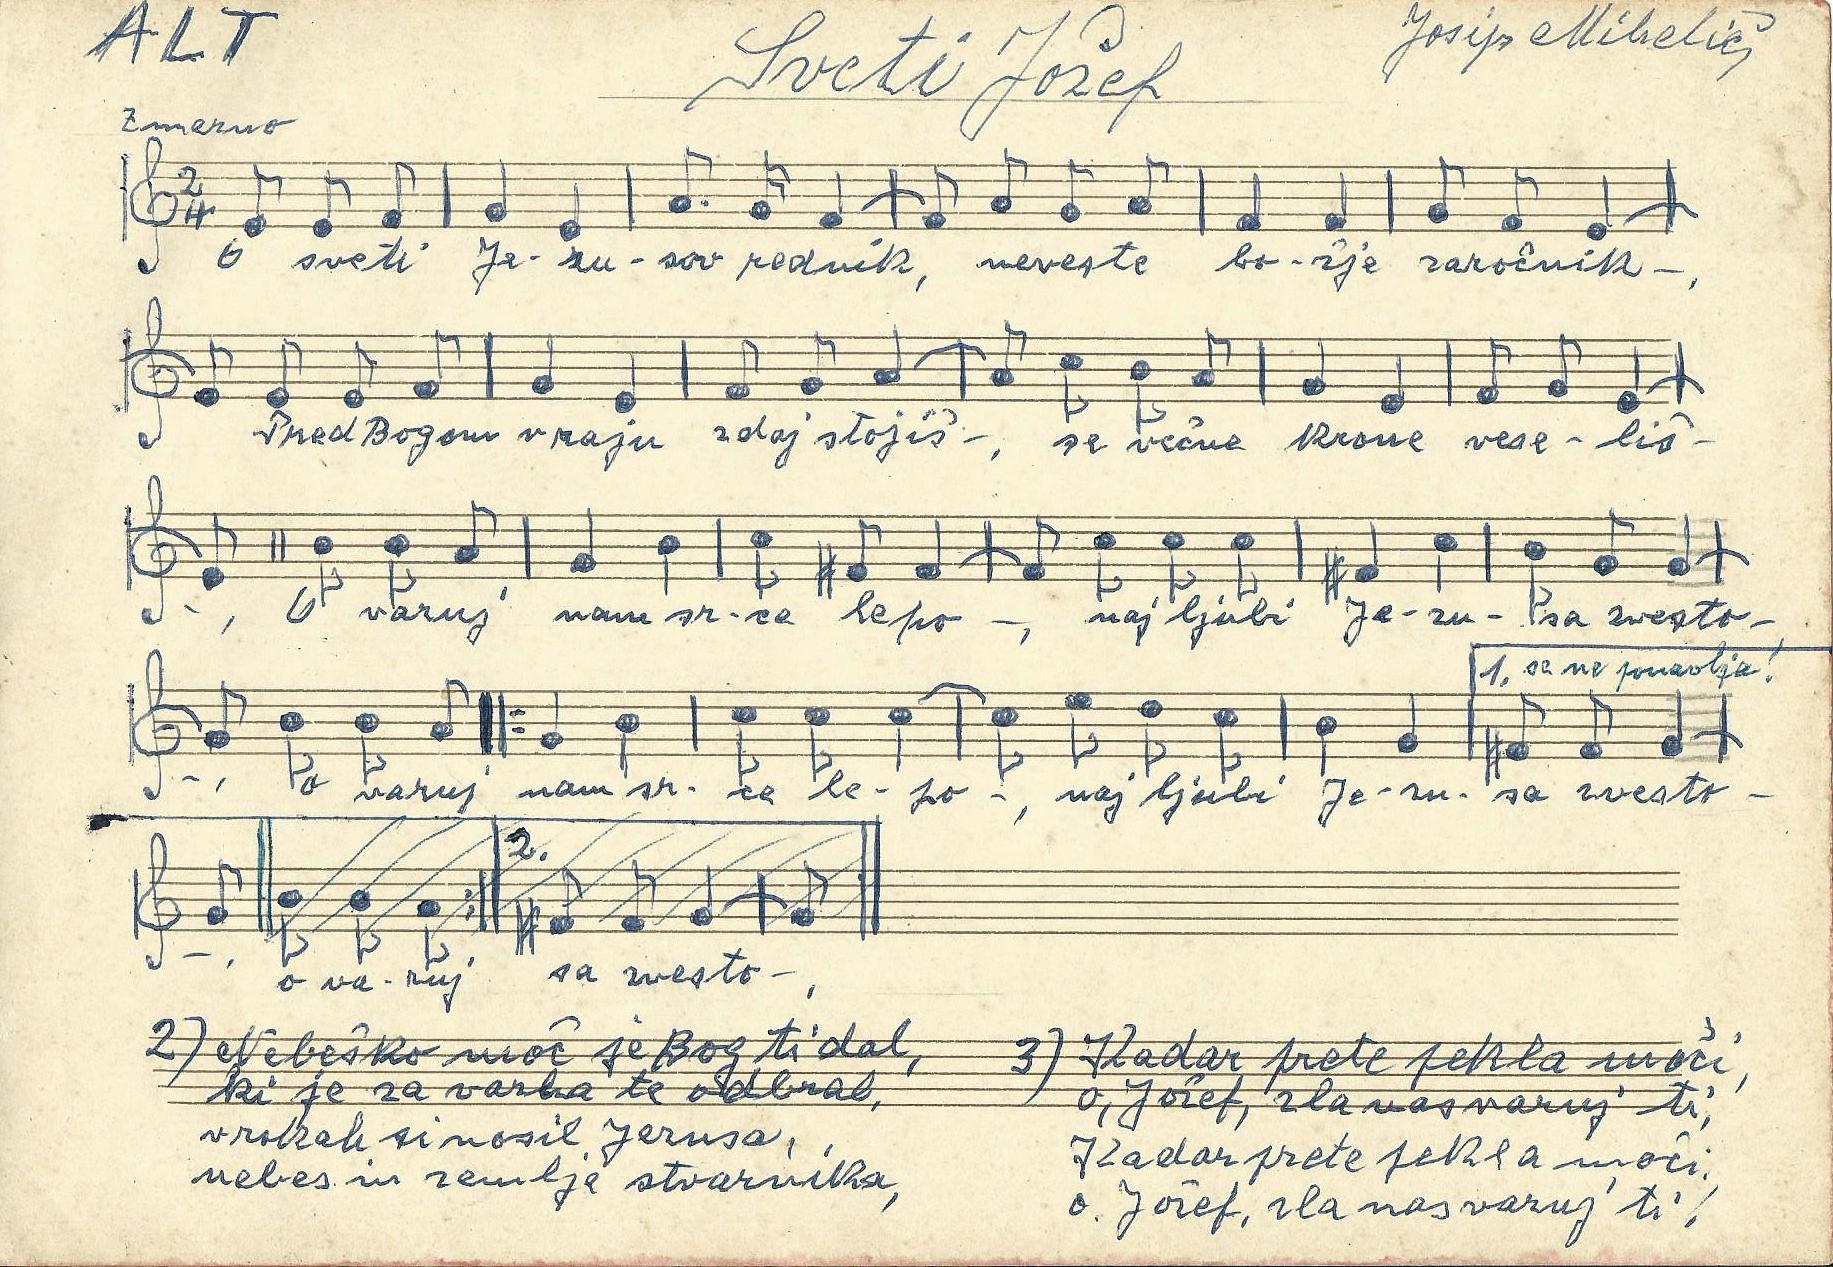 ALT
Sveti Jožef
Josip Mihelčič
Zmerno
2 4
O sveti Je-zu-sov rednik, neveste bo-žje zaročnik-,
Pred Bogom v raju zdaj stojiš-, se večne krone vese-liš-
-, O varuj nam sr-ce lepo -, naj ljubi Je-zu-sa zvesto-
1. se ne ponavlja!
-, o varuj nam sr-ce le-po -, naj ljubi Je-zu-sa zvesto-
2.
-, o va-ruj sa zvesto-,
2) Nebeško moč je Bog ti dal,
ki je za varha te odbral,
v rokah si nosil Jezusa,
nebes in zemlje stvarnika,
3) Kadar prete pekla moči,
o, Jožef, zla nas varuj ti,
Kadar prete pekla moči,
o. Jožef, zla nas varuj ti!